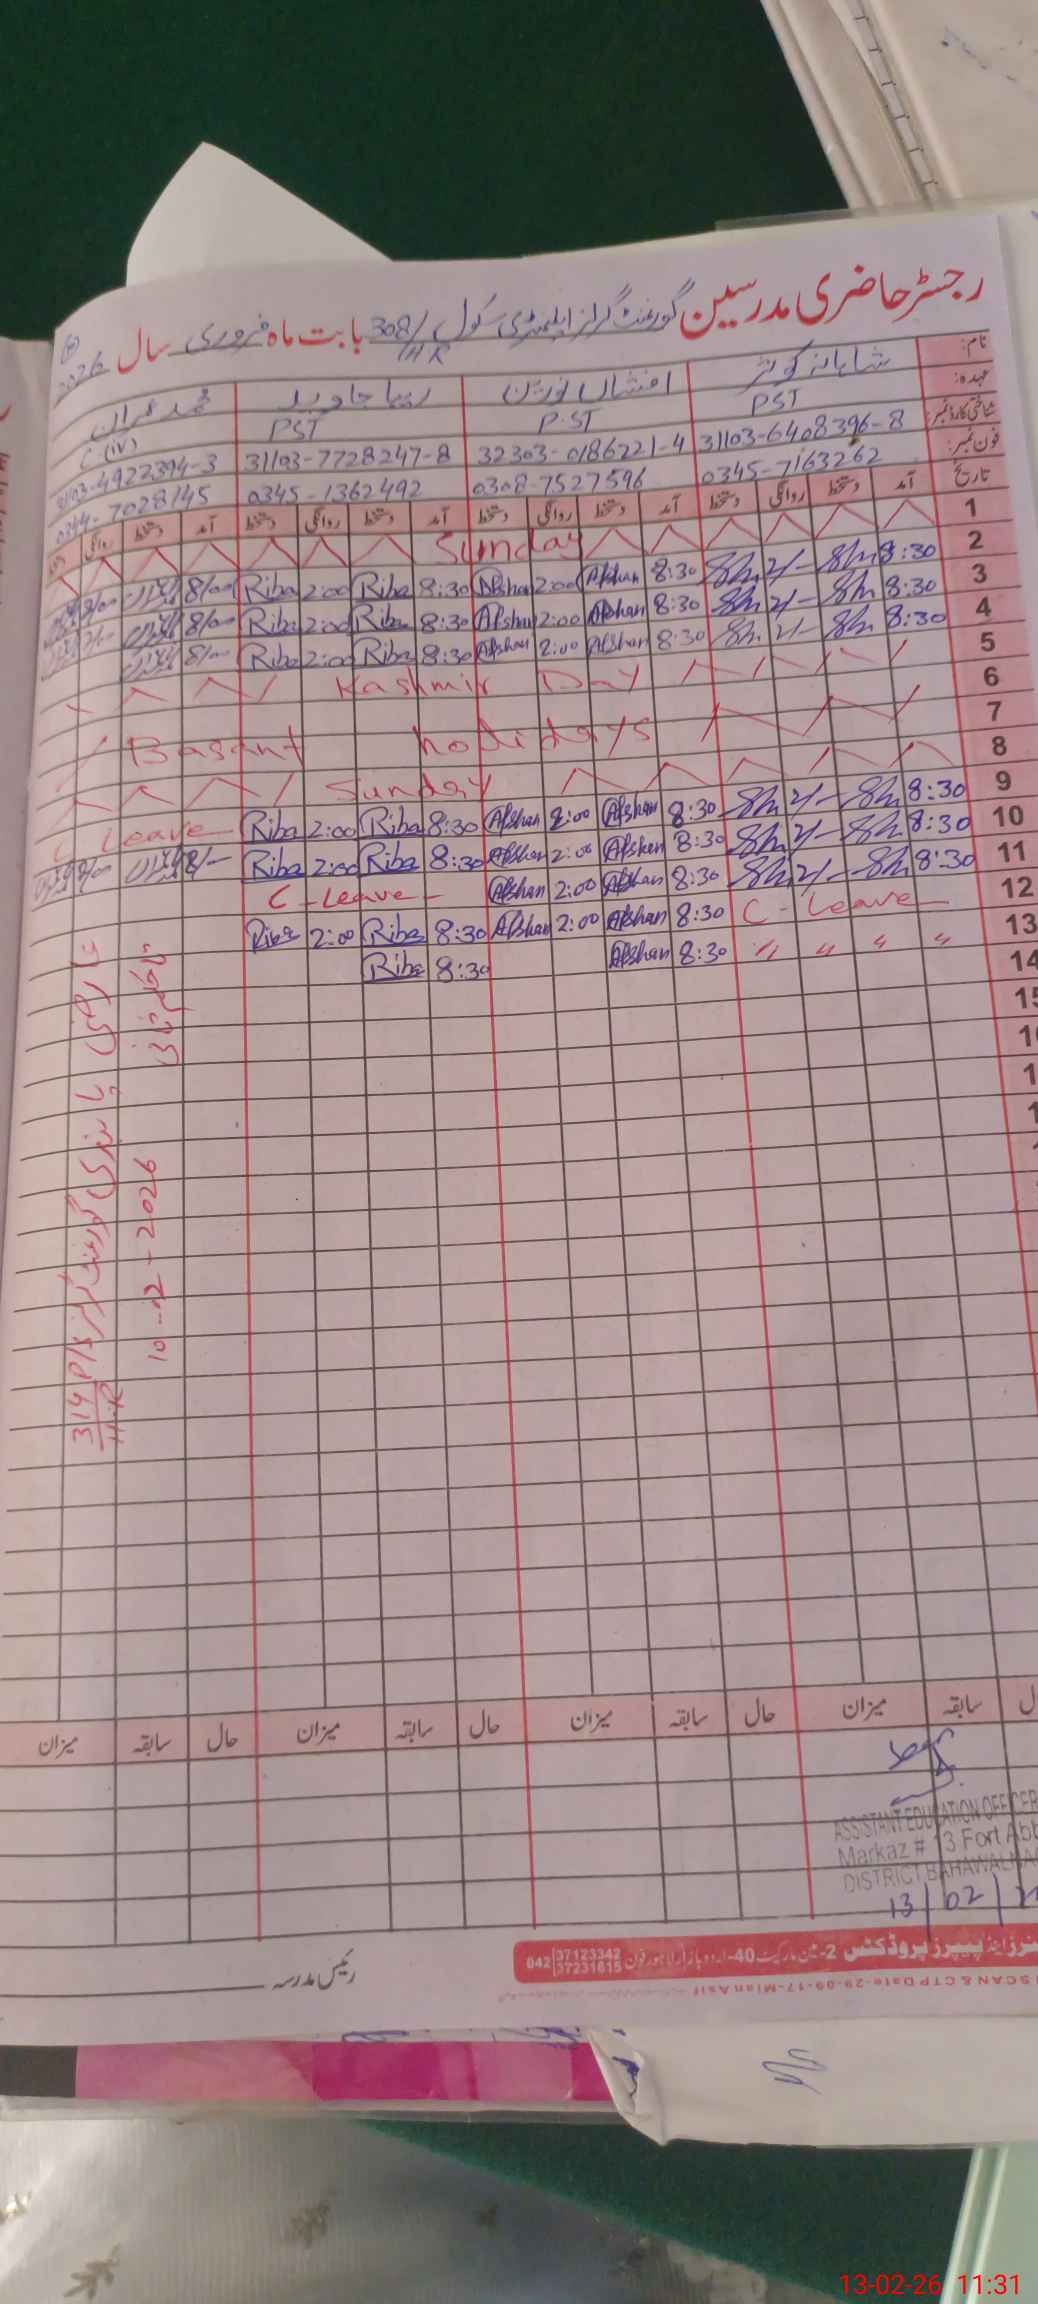 رجسٹر حاضری مدرسین گورنمنٹ گرلز ایلیمنٹری سکول 308/HR بابت ماہ فروری سال 2026
نام: شاہانہ کوثر افشاں نورین ریبا جاوید محمد عمران
عہدہ: PST PST PST C(iv)
شناختی کارڈ نمبر: 31103-6408396-8 32303-0186221-4 31103-7728247-8 31103-4922394-3
فون نمبر: 0345-7163262 0308-7527596 0345-1362492 0344-7028145
تاریخ آمد دستخط روانگی دستخط آمد دستخط روانگی دستخط آمد دستخط روانگی دستخط آمد دستخط روانگی دستخط
1 Sunday
2 8:30 2/- 8:30 Afshan 2:00 Afshan 8:30 Riba 2:00 Riba 8/00
3 8:30 2/- 8:30 Afshan 2:00 Afshan 8:30 Riba 2:00 Riba 8/00 2/-
4 8:30 2/- 8:30 Afshan 2:00 Afshan 8:30 Riba 2:00 Riba 8/00
5 Kashmir Day
6
7 Basant holidays
8 Sunday
9 8:30 2/- 8:30 Afshan 2:00 Afshan 8:30 Riba 2:00 Riba C Leave
10 8:30 2/- 8:30 Afshan 2:00 Afshan 8:30 Riba 2:00 Riba 8/-
11 8:30 2/- 8:30 Afshan 2:00 Afshan C-Leave
12 C-Leave 8:30 Afshan 2:00 Afshan 8:30 Riba 2:00 Riba
13 〃 〃 〃 〃 8:30 Afshan 8:30 Riba
14
15
عارضی پابندی گورنمنٹ گرلز P/S 314/H.R
10-02-2026
حال سابقہ میزان حال سابقہ میزان حال سابقہ میزان حال سابقہ میزان
ASSISTANT EDUCATION OFFICER
Markaz # 13 Fort Abb
DISTRICT BAHAWALNA
13/02/2
پیپرز پروڈکٹس 2-مین مارکیٹ 40-اردو بازار لاہور فون 042 37123342 37231615
SCAN & CTP Date-29-09-17-Mian Asif
رئیس مدرسہ
13-02-26 11:31